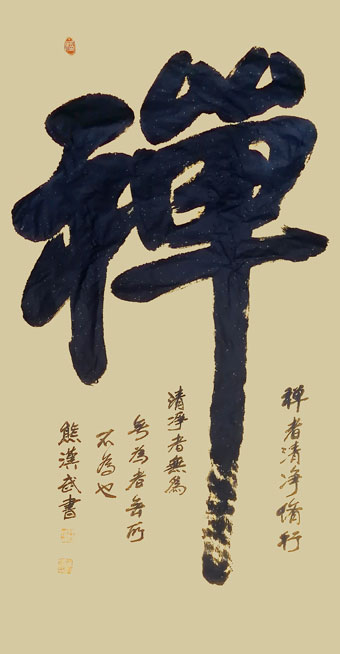 禅
禅者清净脩行
清淨者無為
無為者無所
不為也
熊漢武書